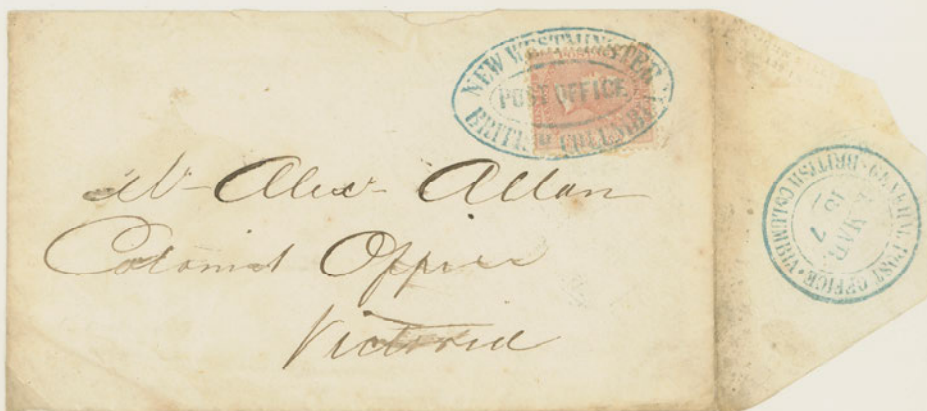 NEW WESTMINSTER
POST OFFICE
BRITISH COLUMBIA
Mr Alexr Allan
Colonist Office
Victoria
POST OFFICE · VI
BRITISH COLUMBIA
MAR
7